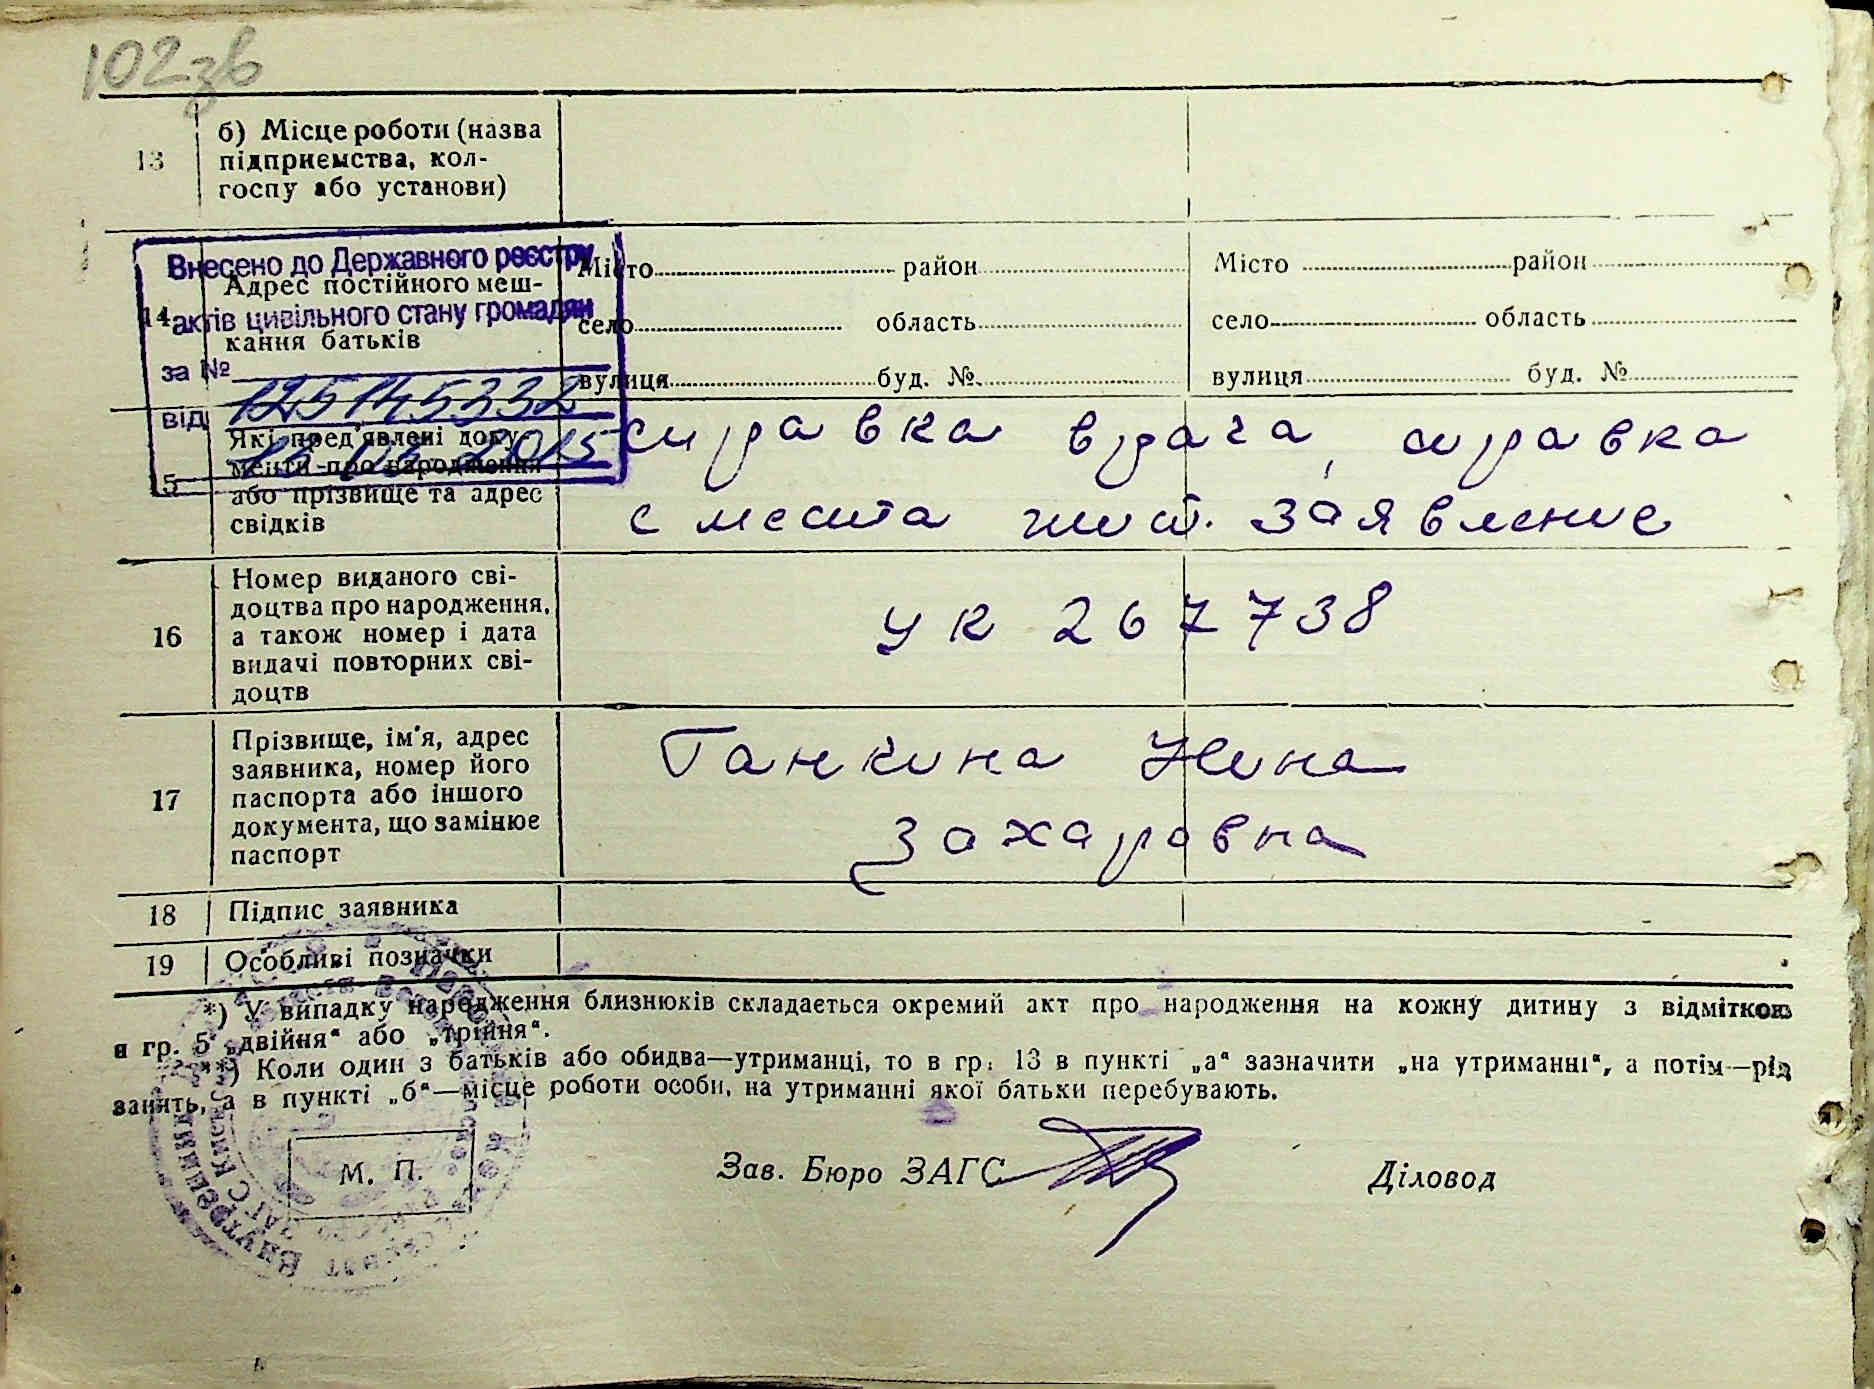 102зв
13
б) Місце роботи (назва
підприємства, кол-
госпу або установи)
Внесено до Державного реєстру
актів цивільного стану громадян
за № 125145332
від 2015
14
Адрес постійного меш-
кання батьків
Місто район
село область
вулиця буд. №
Місто район
село область
вулиця буд. №
5
Які пред'явлені доку-
менти про народження
або прізвище та адрес
свідків
справка врача, справка
с места жит. заявление
16
Номер виданого сві-
доцтва про народження,
а також номер і дата
видачі повторних сві-
доцтв
УК 267738
17
Прізвище, ім'я, адрес
заявника, номер його
паспорта або іншого
документа, що замінює
паспорт
Ганкина Нина
Захаровна
18
Підпис заявника
19
Особливі позначки
*) У випадку народження близнюків складається окремий акт про народження на кожну дитину з відміткою
в гр. 5 „двійня“ або „трійня“.
**) Коли один з батьків або обидва—утриманці, то в гр. 13 в пункті „а“ зазначити „на утриманні“, а потім—рід
занять, а в пункті „б“—місце роботи особи, на утриманні якої батьки перебувають.
М. П.
Зав. Бюро ЗАГС
Діловод